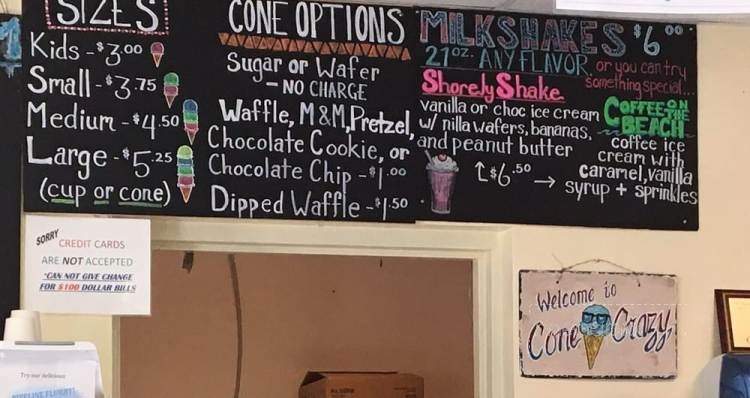 SIZES
Kids - $3.00
Small - $3.75
Medium - $4.50
Large - $5.25
(cup or cone)
CONE OPTIONS
Sugar or Wafer
- NO CHARGE
Waffle, M&M, Pretzel,
Chocolate Cookie, or
Chocolate Chip - $1.00
Dipped Waffle - $1.50
MILKSHAKES $6.00
21oz. ANY FLAVOR
or you can try
something special...
Shorely Shake
vanilla or choc ice cream
w/ nilla wafers, bananas,
and peanut butter
$6.50
COFFEE ON THE
BEACH
coffee ice
cream with
caramel, vanilla
syrup + sprinkles
SORRY
CREDIT CARDS
ARE NOT ACCEPTED
*CAN NOT GIVE CHANGE
FOR $100 DOLLAR BILLS
Welcome to
Cone Crazy!
Try our delicious